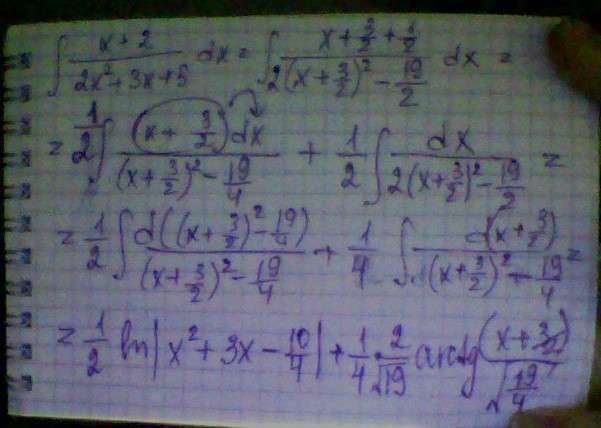 ∫ (x+2)/(2x²+3x+5) dx = ∫ (x+3/2+1/2)/(2(x+3/2)²-19/2) dx =
= 1/2 ∫ (x+3/2)dx/((x+3/2)²-19/4) + 1/2 ∫ dx/(2(x+3/2)²-19/2) =
= 1/2 ∫ d((x+3/2)²-19/4)/((x+3/2)²-19/4) + 1/4 ∫ d(x+3/2)/((x+3/2)²-19/4) =
= 1/2 ln|x²+3x-10/4| + 1/4 · 2/√19 arctg (x+3/2)/√(19/4)